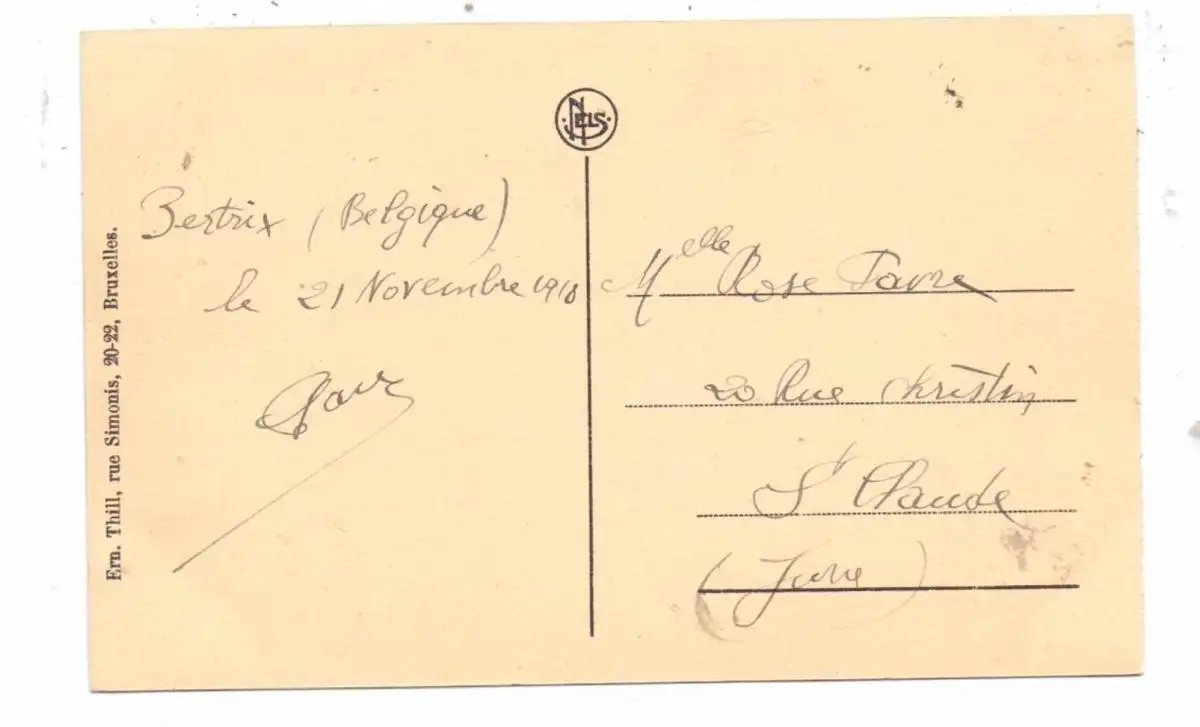 Ern. Thill, rue Simonis, 20-22, Bruxelles.
NELS
Bertrix (Belgique)
le 21 Novembre 1918
Melle Rose Favre
20 Rue Christin
St Claude
(Jura)